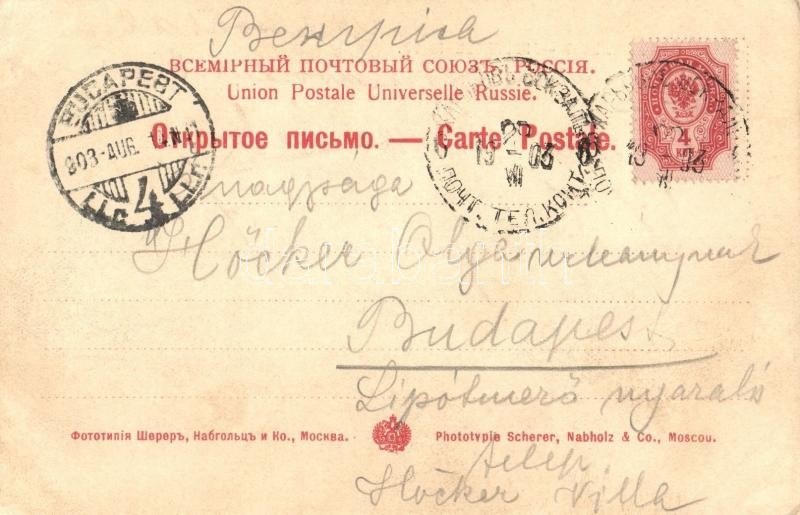 Венгрiа
ВСЕМIРНЫЙ ПОЧТОВЫЙ СОЮЗЪ. РОССIЯ.
Union Postale Universelle Russie.
Открытое письмо. — Carte Postale.
BUDAPEST
903 AUG.
4
27
19 03
VII
ПОЧТ. ТЕЛ. КОНТ.
4
19 03
Höcker Olga
Budapest
Lipótmező nyaraló
telep
Höcker Villa
Фототипiя Шереръ, Набгольцъ и Ко., Москва.
Phototypie Scherer, Nabholz & Co., Moscou.
darabanth